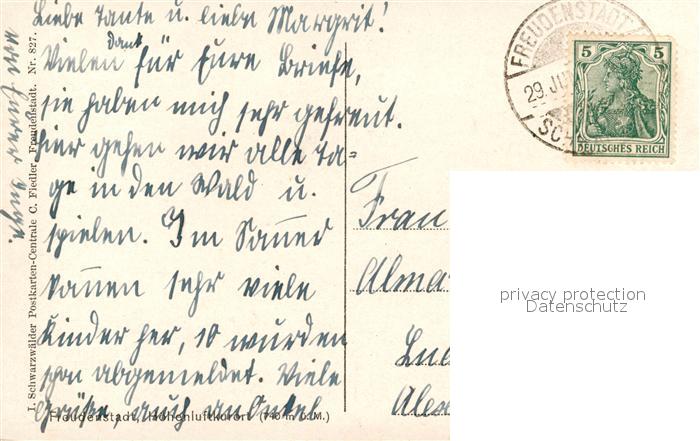 Liebe Tante u. liebe Margrit!
Vielen dank für Eure Briefe,
sie haben mich sehr gefreut.
hier gehen wir alle Ta=
ge in den Wald u.
spielen. Im Sommer
kommen sehr viele
Kinder her, 10 wurden
schon abgemeldet. Viele
Grüße, auch an Onkel
von Eurer Inge.
I. Schwarzwälder Postkarten-Centrale C. Fiedler, Freudenstadt. Nr. 827.
Freudenstadt, Höhenluftkurort (740 m ü. M.)
FREUDENSTADT
29. JU
SCH
5 5
DEUTSCHES REICH
Frau
Alma
privacy protection
Datenschutz